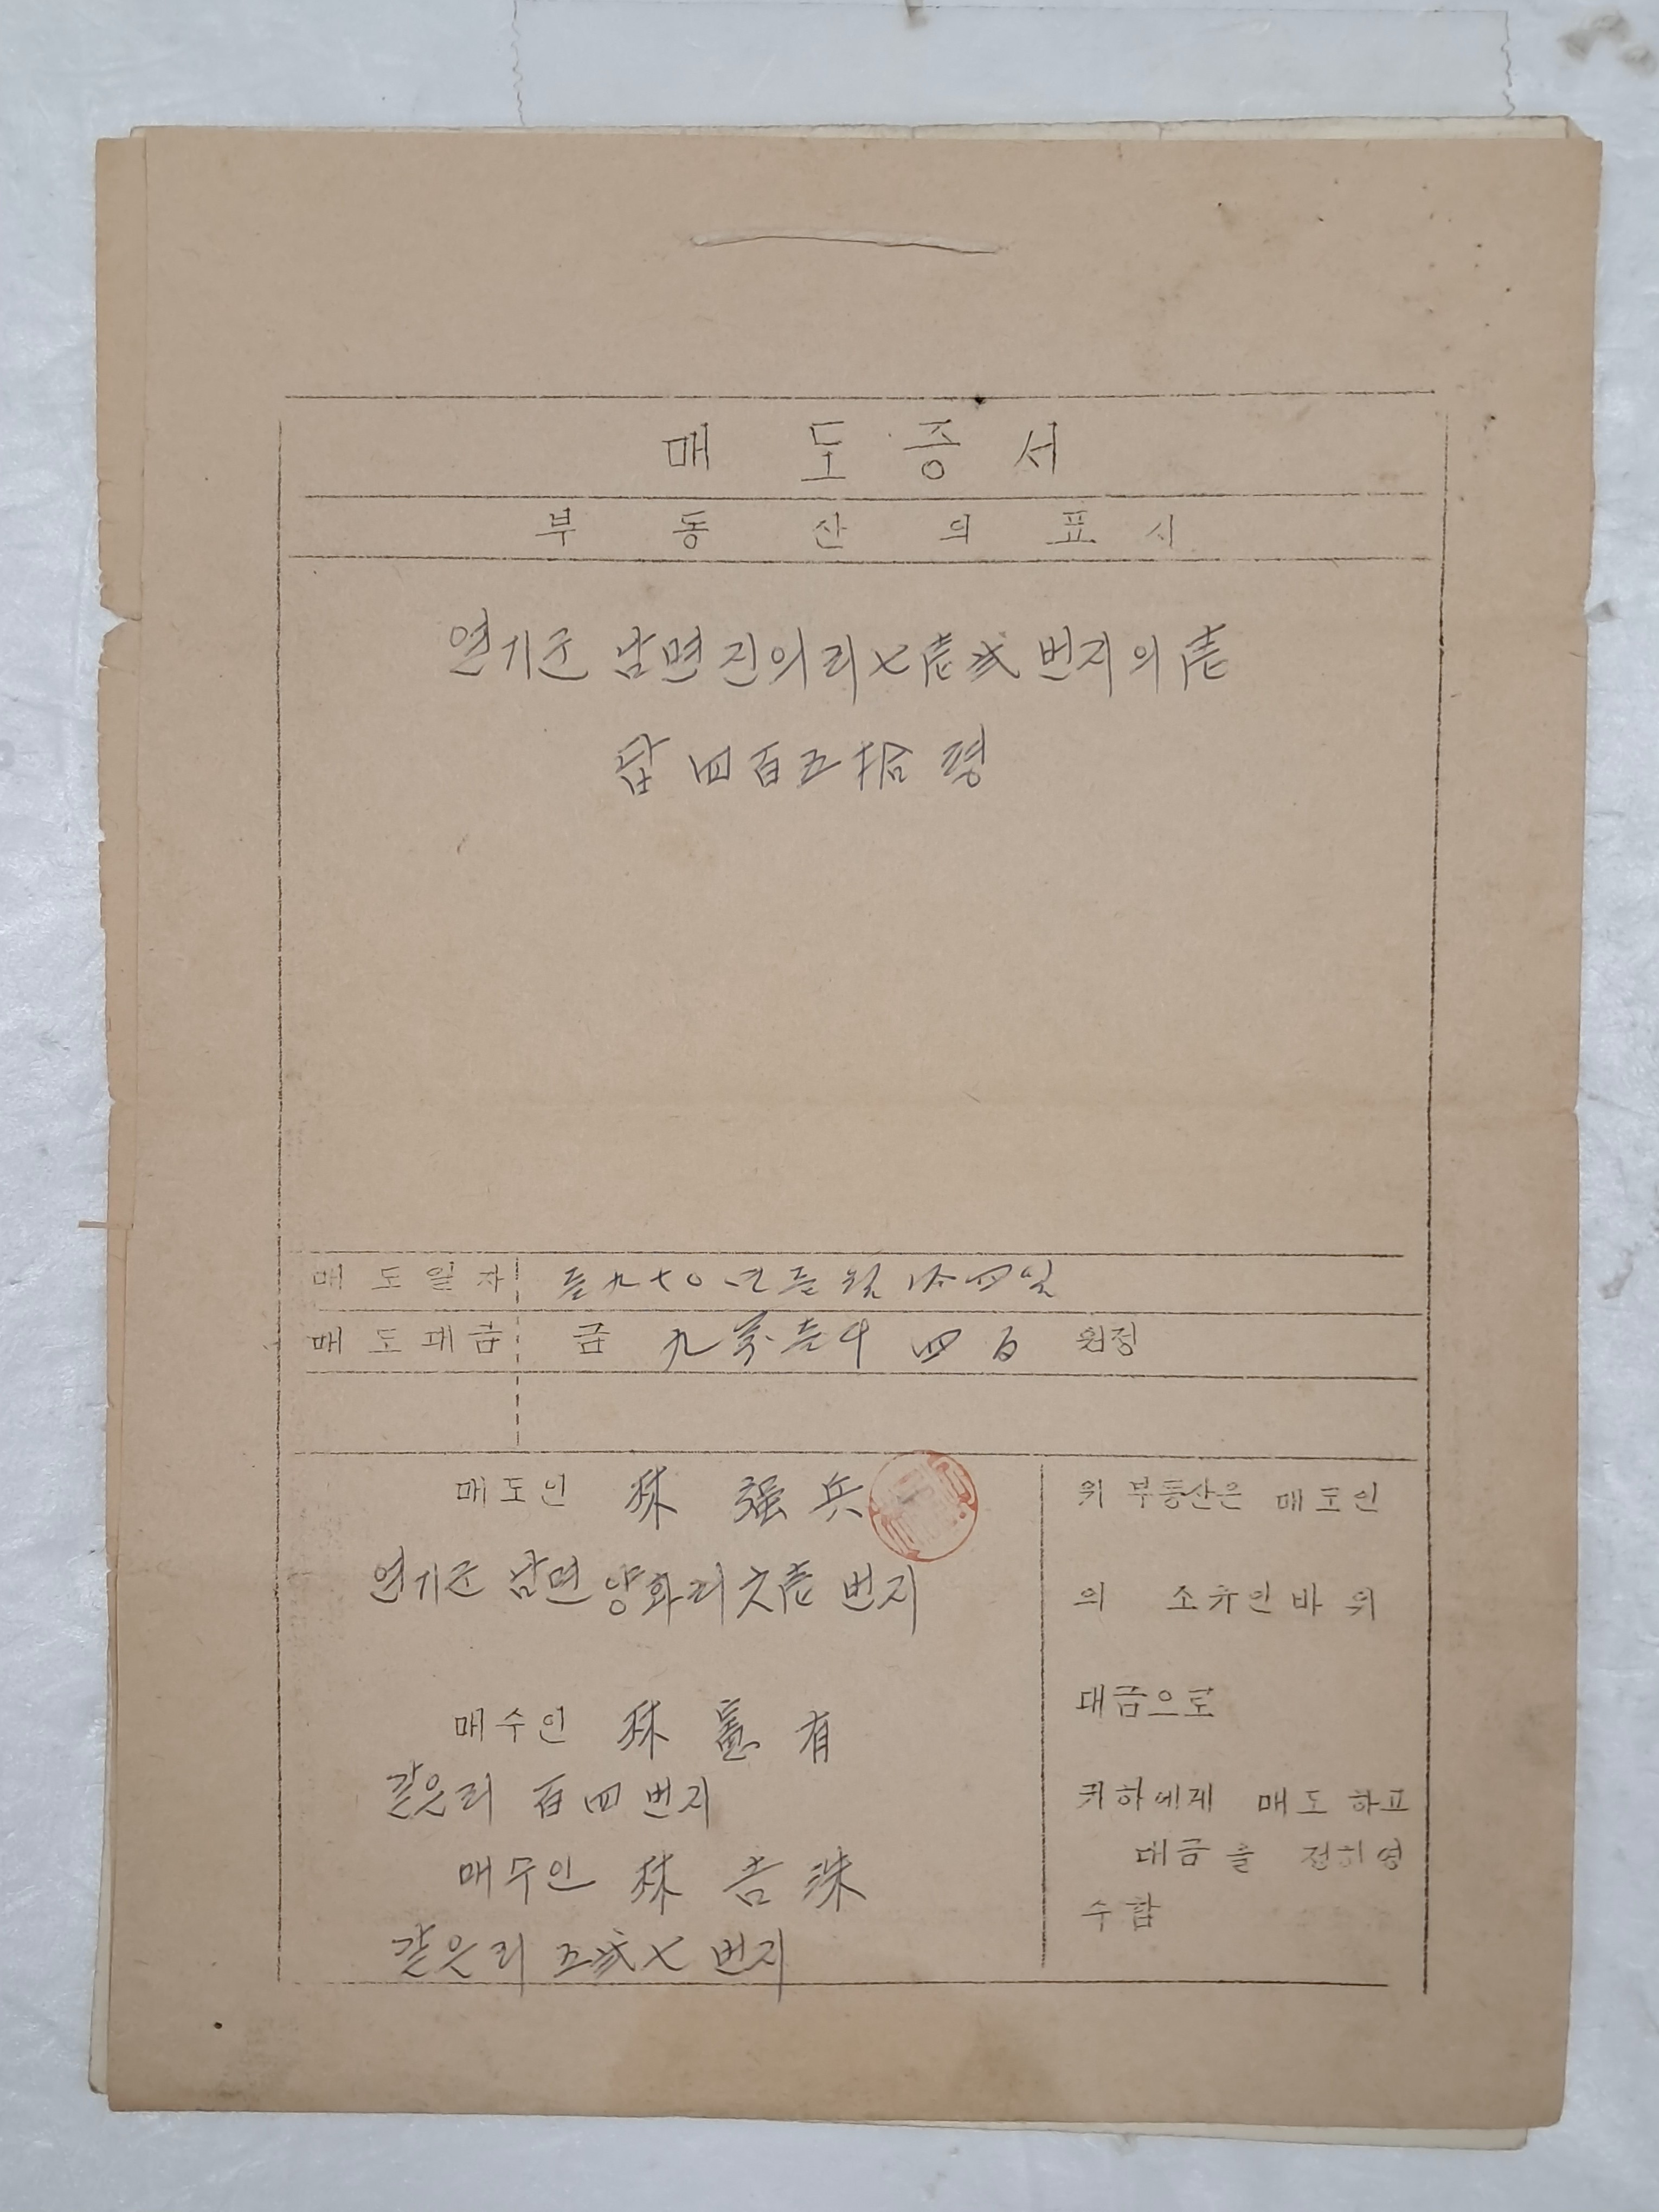 매도증서
부동산의표시
연기군 남면 진의리 七壱弐 번지의 壱
답 四百五拾 평
매도일자 壱九七〇년 壱월 拾四일
매도대금 금 九萬壱千四百 원정
매도인 林 强 兵
연기군 남면 양화리 六壱 번지
매수인 林 憲 有
같은리 百四 번지
매수인 林 吉 洙
같은리 五弐七 번지
위 부동산은 매도인
의 소유인바 위
대금으로
귀하에게 매도하고
대금을 정히영
수함